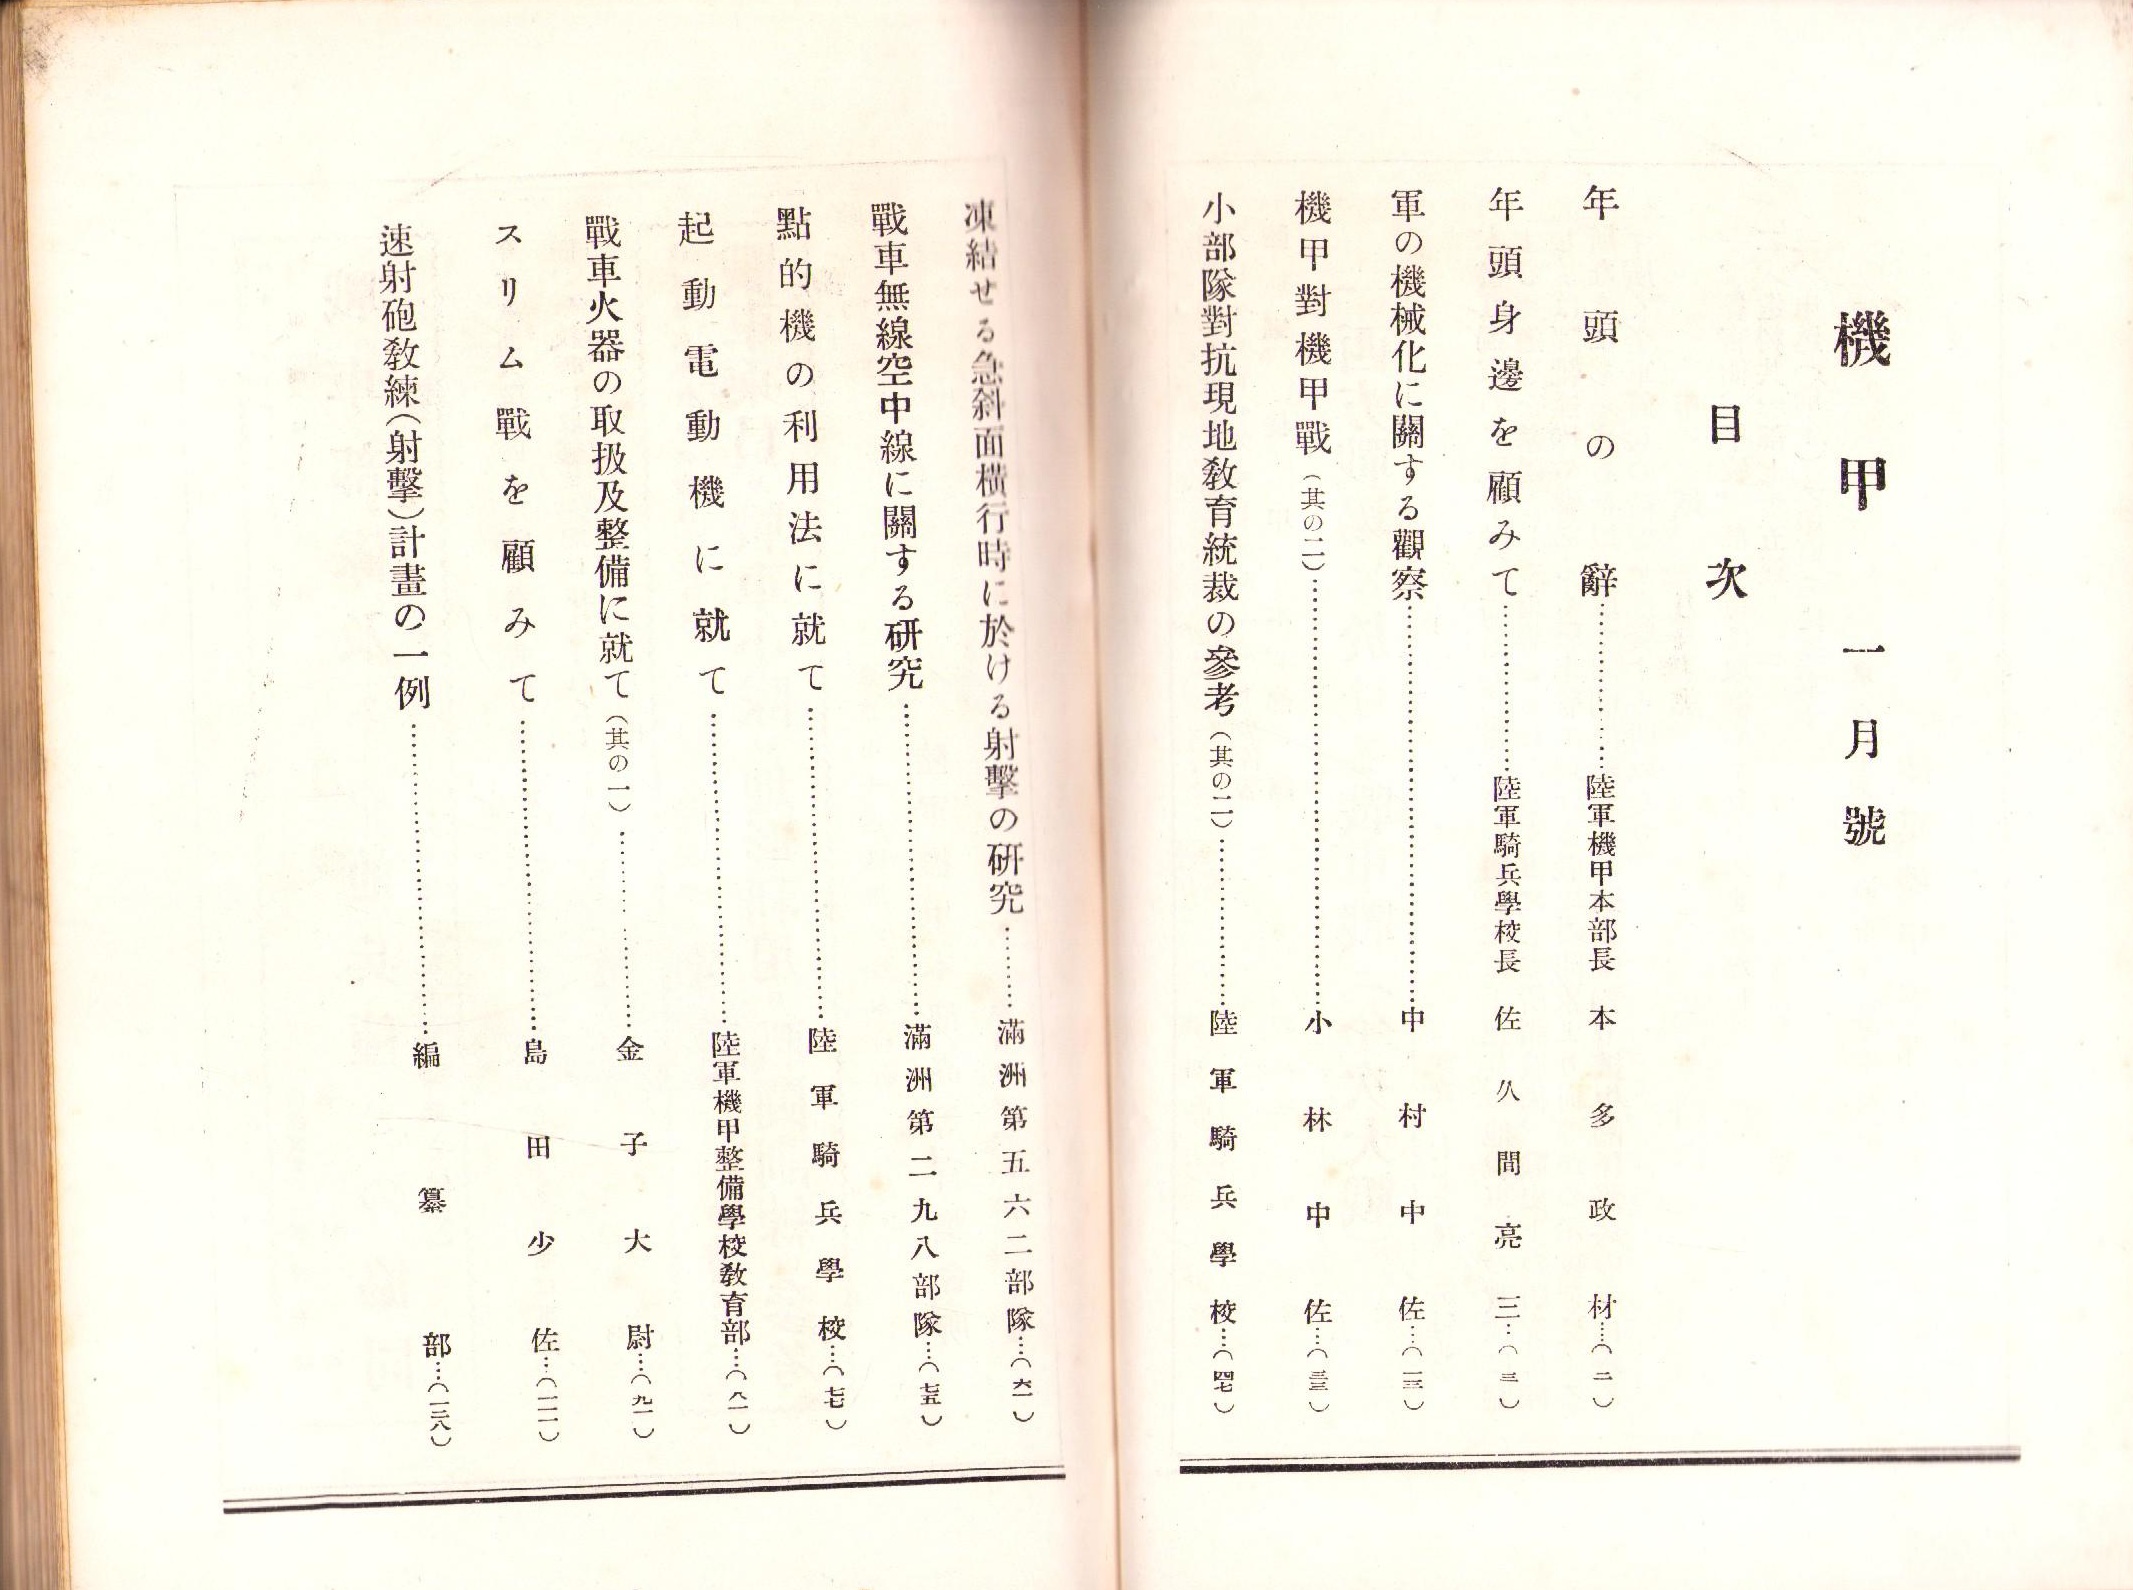 機甲一月號
目次
年頭の辭…………陸軍機甲本部長 本多政材…(二)
年頭身邊を顧みて…………陸軍騎兵學校長 佐久間亮三…(三)
軍の機械化に關する觀察…………中村中佐…(一三)
機甲對機甲戰(其の二)…………小林中佐…(三三)
小部隊對抗現地教育統裁の參考(其の二)…………陸軍騎兵學校…(四七)
凍結せる急斜面橫行時に於ける射擊の硏究………滿洲第五六二部隊…(六一)
戰車無線空中線に關する硏究…………滿洲第二九八部隊…(七五)
點的機の利用法に就て…………陸軍騎兵學校…(七七)
起動電動機に就て…………陸軍機甲整備學校敎育部…(八一)
戰車火器の取扱及整備に就て(其の一)…………金子大尉…(九一)
スリム戰を顧みて…………島田少佐…(一一一)
速射砲敎練(射擊)計畫の一例…………編纂部…(一三八)